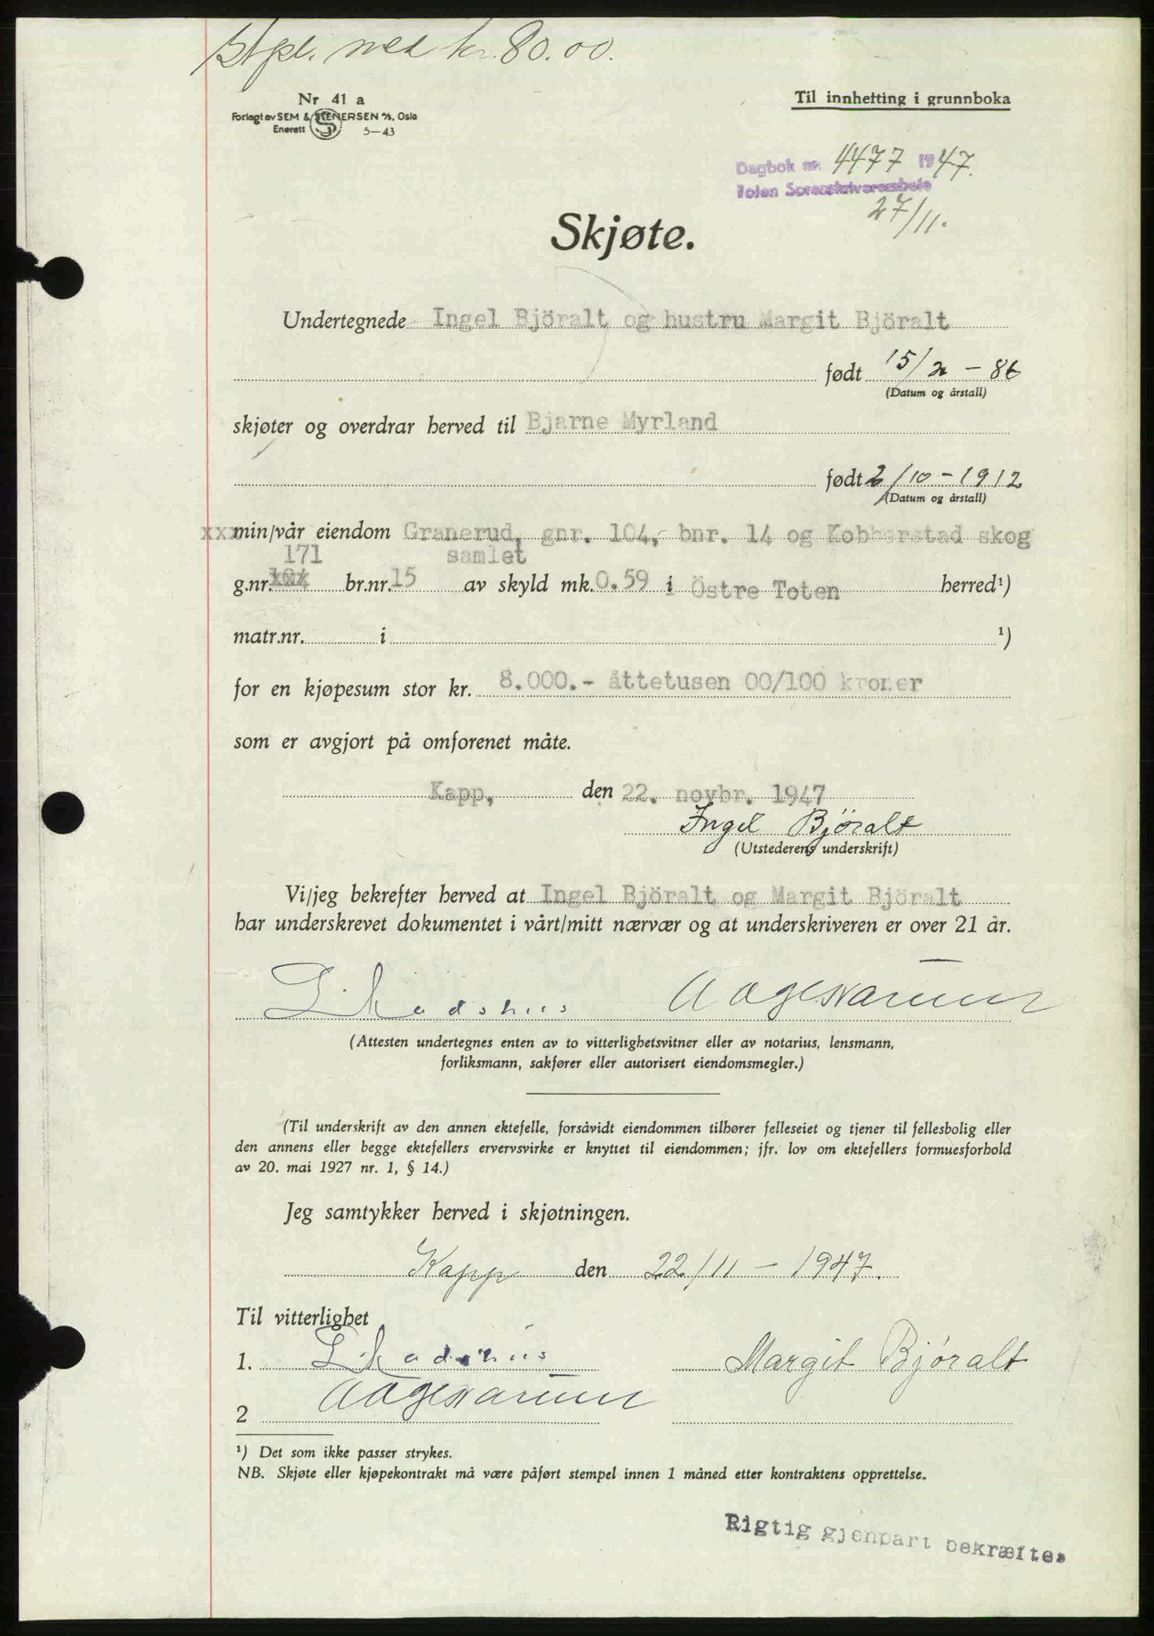 Stpl. med kr. 80.00.
Nr 41 a
Forlagt av SEM & STENERSEN A/S, Oslo
Enerett 5—43
Til innhefting i grunnboka
Dagbok nr. 4477 1947.
Toten Sorenskriverembete
27/11.
Skjøte.
Undertegnede Ingel Björalt og hustru Margit Björalt
født 15/ - 86
(Datum og årstall)
skjøter og overdrar herved til Bjarne Myrland
født 2/10 - 1912
(Datum og årstall)
xxxmin/vår eiendom Granerud, gnr. 104, bnr. 14 og Kobberstad skog
171 samlet
g.nr. 104 br.nr. 15 av skyld mk. 0.59 i Östre Toten herred¹)
matr.nr. i ¹)
for en kjøpesum stor kr. 8.000.- åttetusen 00/100 kroner
som er avgjort på omforenet måte.
Kapp, den 22. novbr. 1947
Ingel Bjøralt
(Utstederens underskrift)
Vi/jeg bekrefter herved at Ingel Björalt og Margit Björalt
har underskrevet dokumentet i vårt/mitt nærvær og at underskriveren er over 21 år.
(Attesten undertegnes enten av to vitterlighetsvitner eller av notarius, lensmann,
forliksmann, sakfører eller autorisert eiendomsmegler.)
(Til underskrift av den annen ektefelle, forsåvidt eiendommen tilhører felleseiet og tjener til fellesbolig eller
den annens eller begge ektefellers ervervsvirke er knyttet til eiendommen; jfr. lov om ektefellers formuesforhold
av 20. mai 1927 nr. 1, § 14.)
Jeg samtykker herved i skjøtningen.
Kapp den 22/11 - 1947.
Til vitterlighet
1. Margit Bjøralt
2
¹) Det som ikke passer strykes.
NB. Skjøte eller kjøpekontrakt må være påført stempel innen 1 måned etter kontraktens opprettelse.
Rigtig gjenpart bekræftes